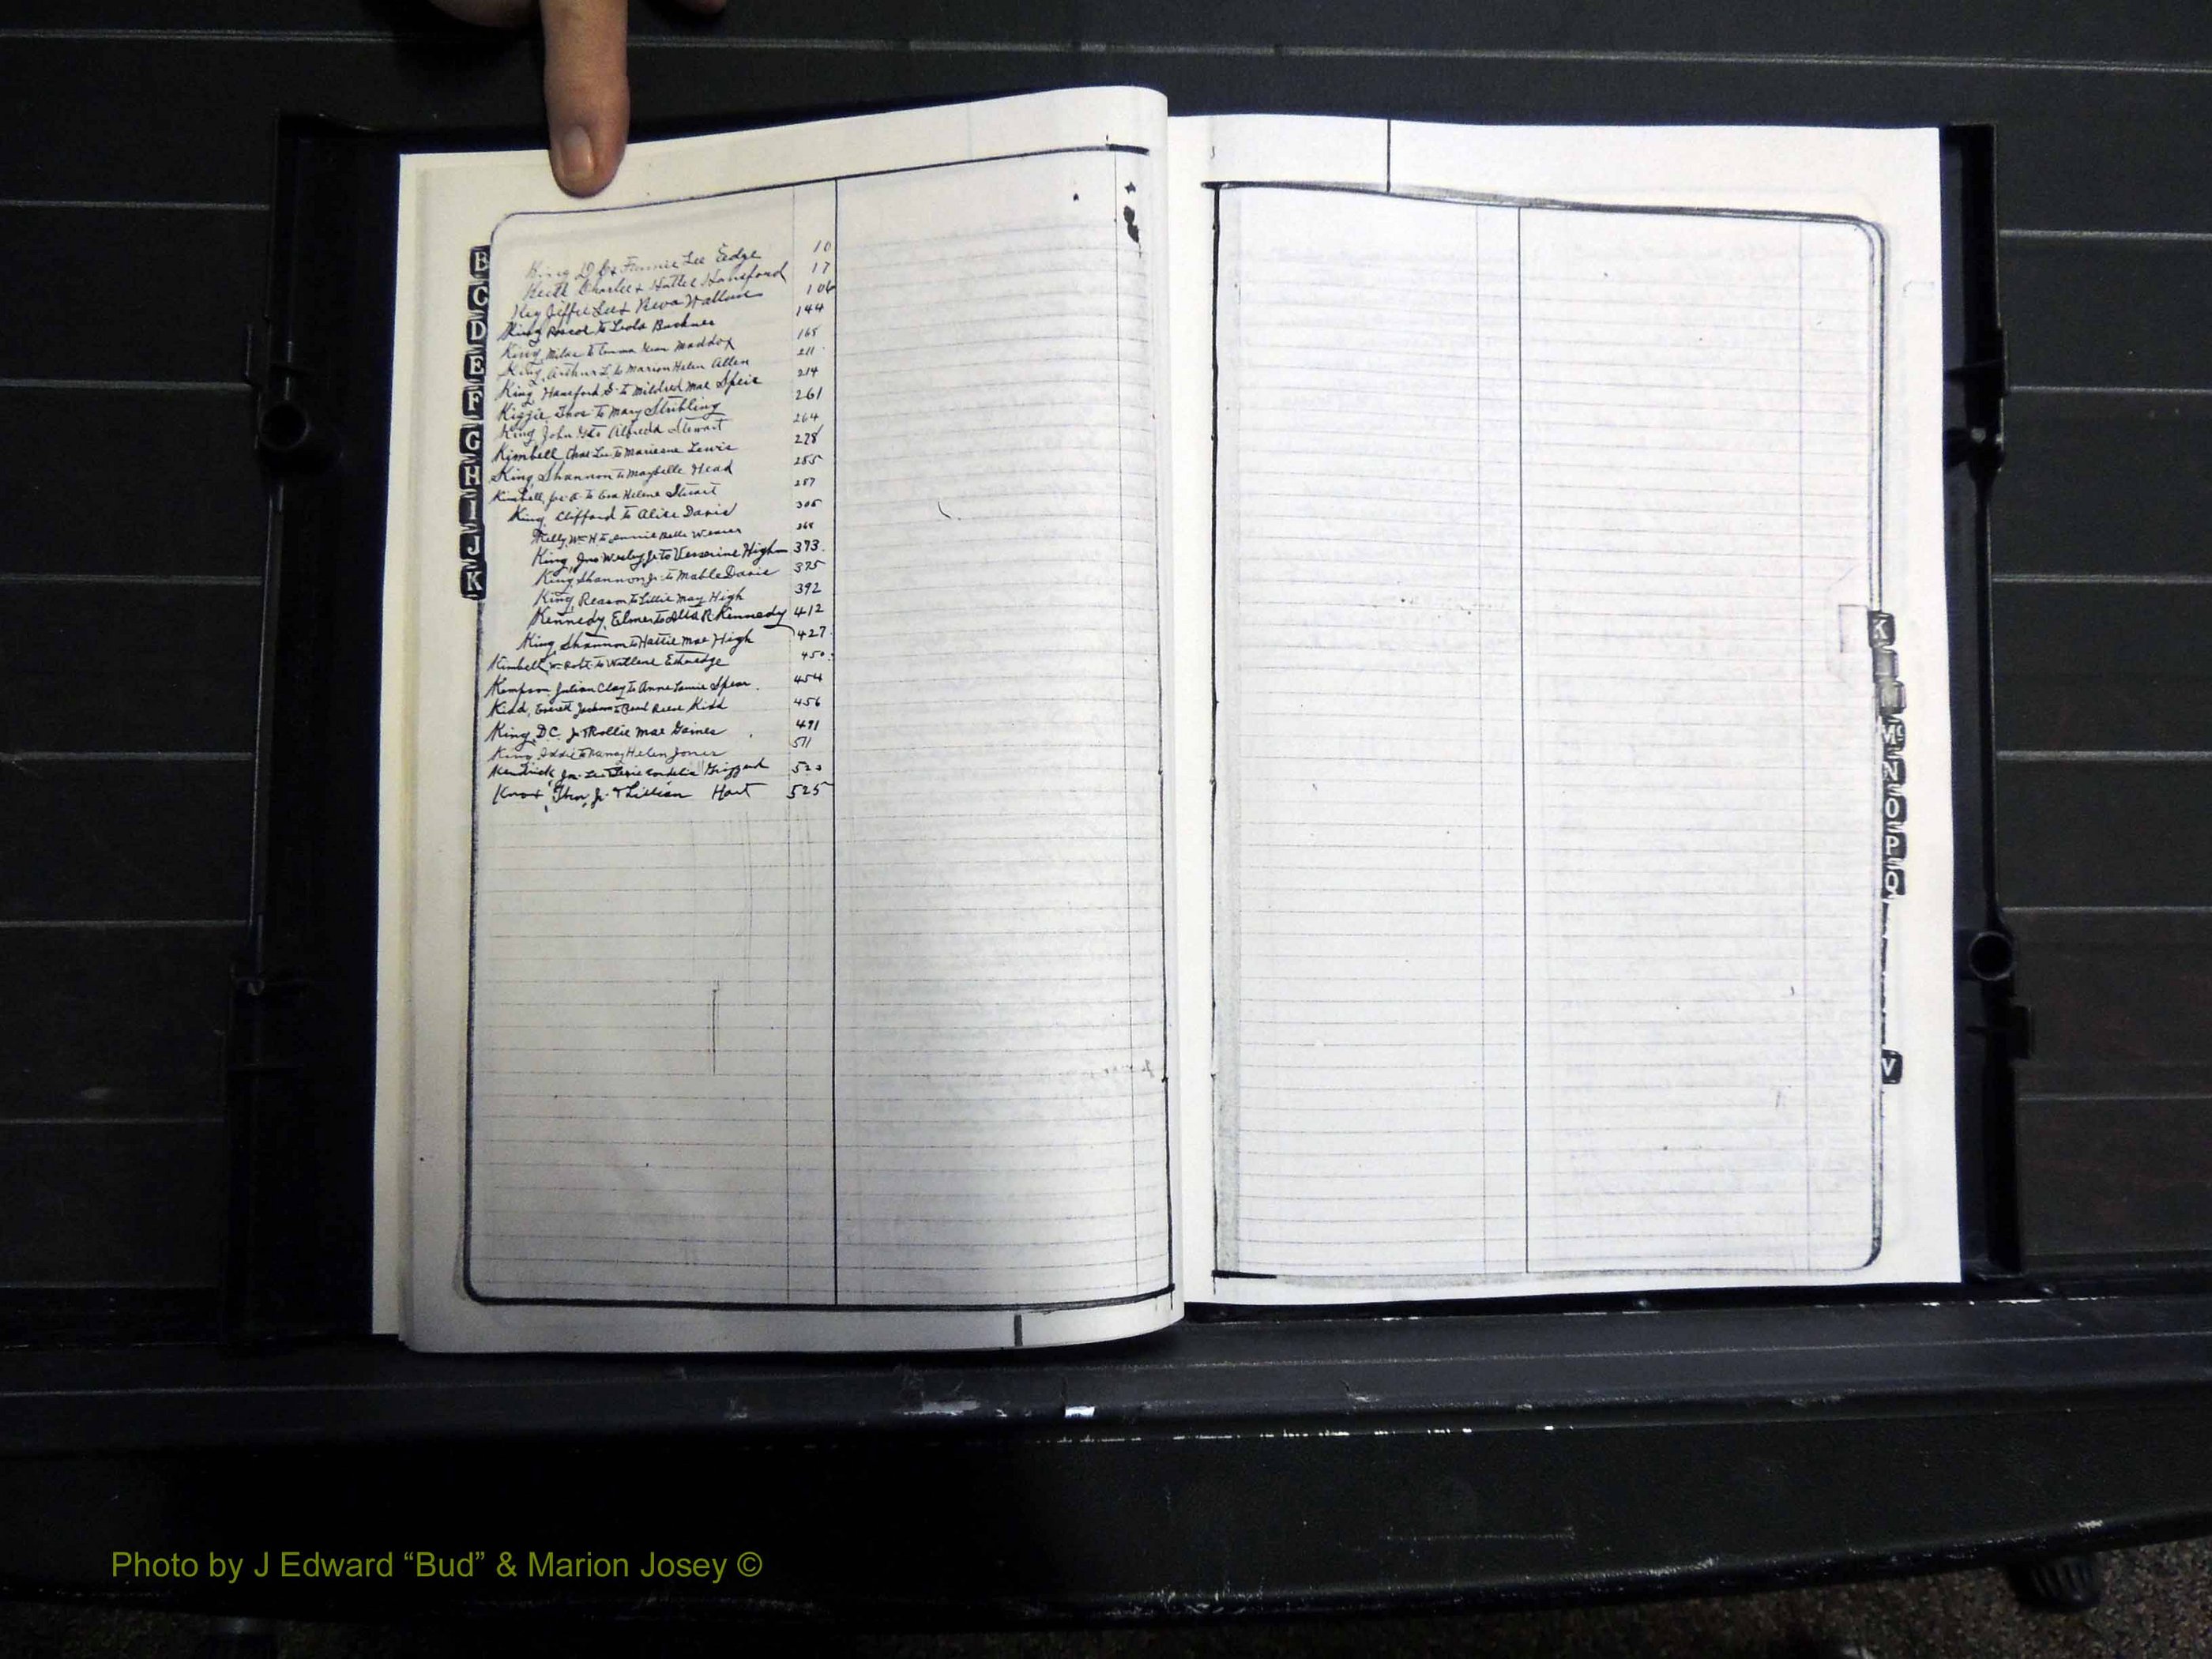 B
C
D
E
F
G
H
I
J
K
King D C & Fannie Lee Edge 10
Keith Charlie & Hattie Hansford 17
Key Jeffie Lee & Reva Wallace 106
King Roscoe to Leola Buckner 144
King, Milas to Emma Maddox 165
King, Arthur L. to Marion Helen Allen 211
King, Hansford S. to Mildred Mae Speir 214
Kiggie Thos to Mary Stribling 261
King John to Alfreda Stewart 264
Kimbell, Chas Lee to Lewis 278
King, Shannon to Maybelle Head 285
Kimbell, Joe A. to Eva Helene Stuart 287
King, Clifford to Alice Davis 305
Kelly, Wm H. to Annie Belle Weaver
King, Jno Wesley Jr to Vesserine High 373
King, Shannon Jr. to Mable Davis 375
King, Reason to Lillie May High 392
Kennedy, Elmer to Alta R Kennedy 412
King, Shannon to Hattie Mae High 427
Kimbell, W. Robt to Wallene Ethredge 450
Kempson Julian Clay to Anne Spear 454
Kidd, Everett Jackson to Reese Kidd 456
King, D.C. Jr to Rollie Mae Gaines 491
King, to Nancy Helen Jones 511
Kendrick, Cordelia Grizzard 523
Knox, Thos, Jr. to Lillian Hart 525
K
Mc
N
O
P
Q
V
Photo by J Edward “Bud” & Marion Josey ©